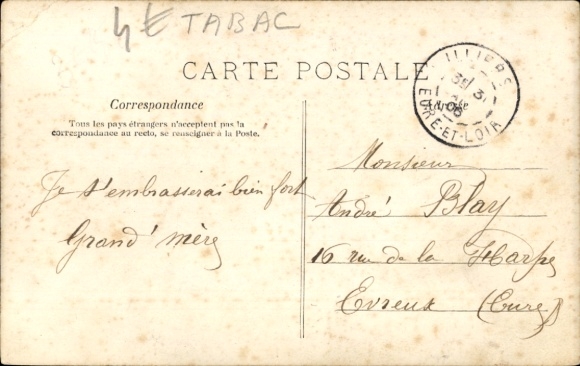 4 € TABAC
CARTE POSTALE
ILLIERS
EURE-ET-LOIR
3E 31
06
Correspondance
Adresse
Tous les pays étrangers n'acceptent pas la
correspondance au recto, se renseigner à la Poste.
Monsieur
Je t'embrasserai bien fort
André Blay
Grand'mère
16 rue de la Harpe
Evreux (Eure)